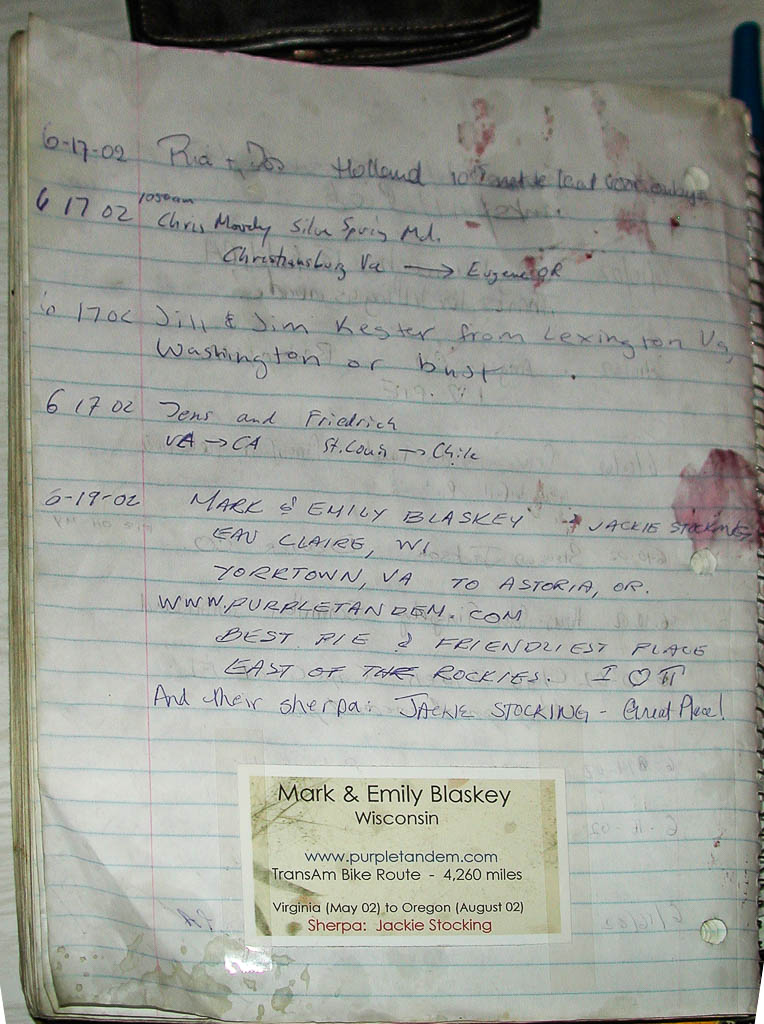 6-17-02 Ria + Jos Holland
6 17 02 1050am Chris Moody Silver Spring Md.
Christiansburg Va → Eugene OR
6 17 02 Jill & Jim Kester from Lexington Va,
Washington or bust.
6 17 02 Jens and Friedrich
VA → CA St. Louis → Chile
6-19-02 MARK & EMILY BLASKEY + JACKIE STOCKING
EAU CLAIRE, WI
YORKTOWN, VA TO ASTORIA, OR.
WWW.PURPLETANDEM.COM
BEST PIE & FRIENDLIEST PLACE
EAST OF THE ROCKIES. I ♡ π
And their sherpa: JACKIE STOCKING - Great Place!
Mark & Emily Blaskey
Wisconsin
www.purpletandem.com
TransAm Bike Route - 4,260 miles
Virginia (May 02) to Oregon (August 02)
Sherpa: Jackie Stocking